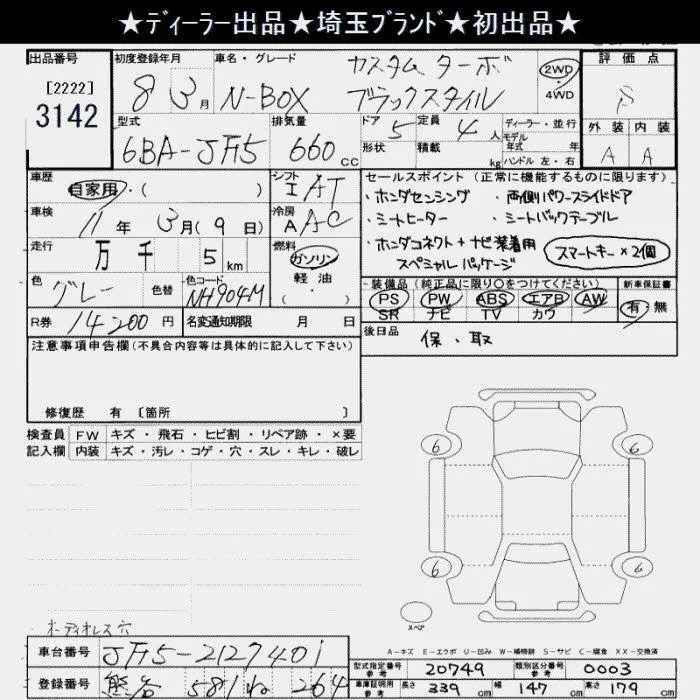 ★ディーラー出品★埼玉ブランド★初出品★
出品番号 初度登録年月 車名・グレード カスタム ターボ 2WD 評価点
[2222] 8 3月 N-BOX ブラックスタイル ・4WD S
3142
型式 排気量 ドア 5 定員 4人 ディーラー・並行 外装 内装
6BA-JF5 660cc 形状 積載 kg モデル年式 年 ハンドル 左・右 A A
車歴 自家用・( ) シフト I AT セールスポイント (正常に機能するものに限ります)
車検 11年 3月(9日) 冷房 A AC ・ホンダセンシング ・両側パワースライドドア
・シートヒーター ・シートバックテーブル
走行 万 千 5km 燃料 ガソリン ・ホンダコネクト+ナビ装着用 スマートキー×2個
軽油 スペシャルパッケージ
( )
色 グレー 色替 色コード NH904M 装備品(純正品に限り○をつけてください) 新車保証書
PS PW ABS エアB AW 有・無
SR ナビ TV カワ
R券 14200円 名変通知期限 月 日 後日品 保・取
注意事項申告欄(不具合内容等は具体的に記入して下さい)
修復歴 有 [箇所 ]
検査員 FW キズ・飛石・ヒビ割・リペア跡・×要
記入欄 内装 キズ・汚レ・コゲ・穴・スレ・キレ・破レ
6 6
6 6
スペア
オーディオレス穴
A-キズ E-エクボ U-凹み W-補修跡 S-サビ C-腐食 XX-交換済
車台番号 JF5-2127401 型式指定番号 参考 20749 類別区分番号 参考 0003
登録番号 熊谷 581 ね 264 車庫証明用 参考 長さ 339cm 幅 147cm 高さ 179cm